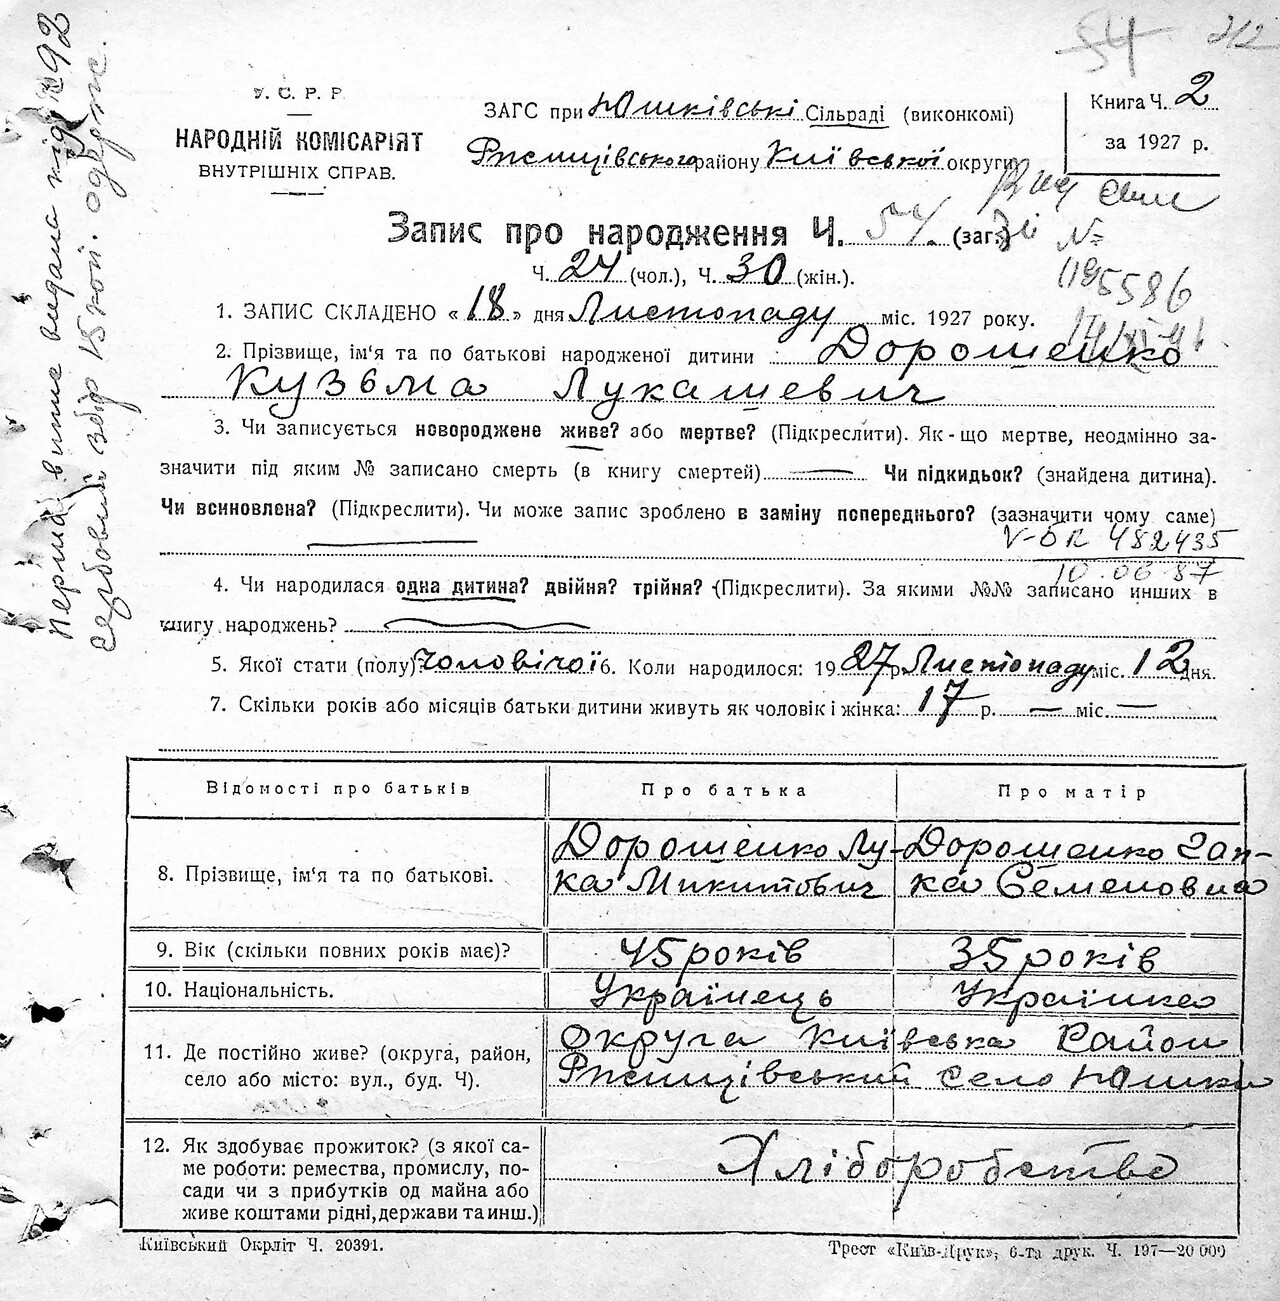 54 212
У. С. Р. Р.
НАРОДНІЙ КОМІСАРІЯТ
ВНУТРІШНІХ СПРАВ.
ЗАГС при Юшківські Сільраді (виконкомі)
Ржищівського району Київської округи
Книга Ч. 2
за 1927 р.
Запис про народження Ч. 54. (заг.)
Ч. 24 (чол.), Ч. 30 (жін.).
№
14/XI-41
1. ЗАПИС СКЛАДЕНО « 18 » дня Листопаду міс. 1927 року.
2. Прізвище, ім'я та по батькові народженої дитини Дорошенко
Кузьма Лукашевич
3. Чи записується новороджене живе? або мертве? (Підкреслити). Як-що мертве, неодмінно за-
значити під яким № записано смерть (в книгу смертей) Чи підкидьок? (знайдена дитина).
Чи всиновлена? (Підкреслити). Чи може запис зроблено в заміну попереднього? (зазначити чому саме)
V-БК 482435
10.06.87
4. Чи народилася одна дитина? двійня? трійня? (Підкреслити). За якими №№ записано инших в
книгу народжень?
5. Якої стати (полу)? Чоловічої 6. Коли народилося: 1927 р. Листопаду міс. 12 дня.
7. Скільки років або місяців батьки дитини живуть як чоловік і жінка: 17 р. — міс. —
Відомості про батьків Про батька Про матір
8. Прізвище, ім'я та по батькові. Дорошенко Лу- Дорошенко Гап-
ка Микитович ка Семеновна
9. Вік (скільки повних років має)? 45 років 35 років
10. Національність. Українець Українка
11. Де постійно живе? (округа, район,
село або місто: вул., буд. Ч).
Округа Київська Район
Ржищівський село Юшки
12. Як здобуває прожиток? (з якої са-
ме роботи: ремества, промислу, по-
сади чи з прибутків од майна або
живе коштами рідні, держави та инш.)
Хліборобство
Київський Окрліт Ч. 20391.
Трест «Київ-Друк», 6-та друк. Ч. 197—20 000